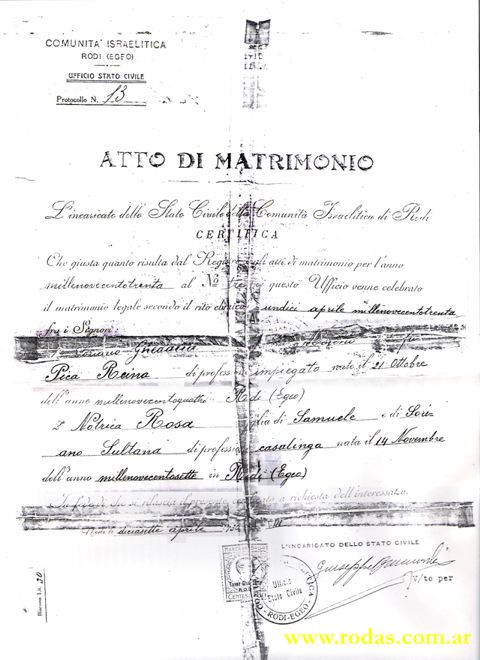 COMUNITÀ ISRAELITICA
RODI (EGEO)
UFFICIO STATO CIVILE
Protocollo N. 13
ATTO DI MATRIMONIO
L'incaricato dello Stato Civile della Comunità Israelitica di Rodi
CERTIFICA
Che giusta quanto risulta dal Registro degli atti di matrimonio per l'anno
millenovecentotrenta al Nº questo Ufficio venne celebrato
il matrimonio legale secondo il rito ebraico undici aprile millenovecentotrenta
fra i Signori
Pica Reina di professione impiegato nato il 21 Ottobre
dell'anno millenovecentoquattro Rodi (Egeo)
2º Notrica Rosa figlia di Samuele e di Sori
ano Sultana di professione casalinga nata il 14 Novembre
dell'anno millenovecentosette in Rodi (Egeo)
In fede di che si rilascia a richiesta dell'interessato.
diciasette aprile
L'INCARICATO DELLO STATO CIVILE
Giuseppe
V/to per
Stato Civile
RODI-EGEO
Riscosse Lit. 20
www.rodas.com.ar